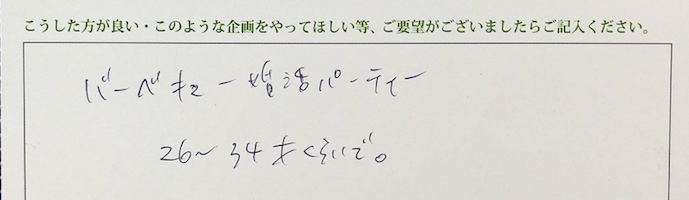 こうした方が良い・このような企画をやってほしい等、ご要望がございましたらご記入ください。
バーベキュー婚活パーティー
26〜34才くらいで。